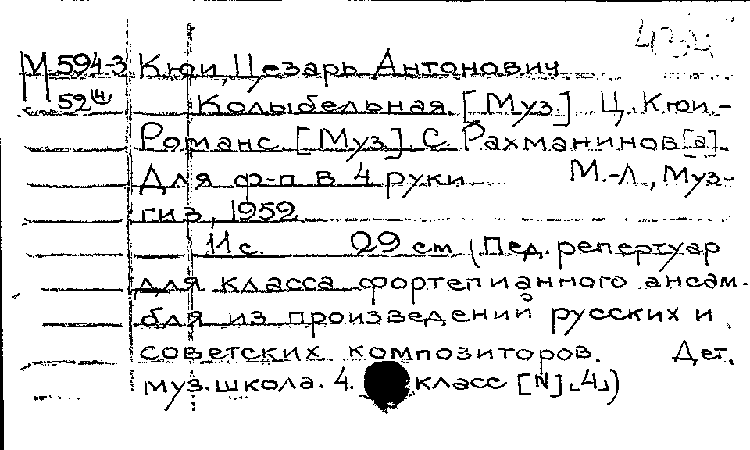 М 594-3 Кюи, Цезарь Антонович
52(4) Колыбельная [Муз] Ц. Кюи.-
Романс [Муз]. С Рахманинов[а].
Для ф-п в 4 руки М.-Л., Муз-
гиз, 1959
11 с. 29 см (Пед. репертуар
для класса фортепианного ансам-
бля из произведений русских и
советских композиторов. Дет.
муз. школа. 4. класс [N] 4)